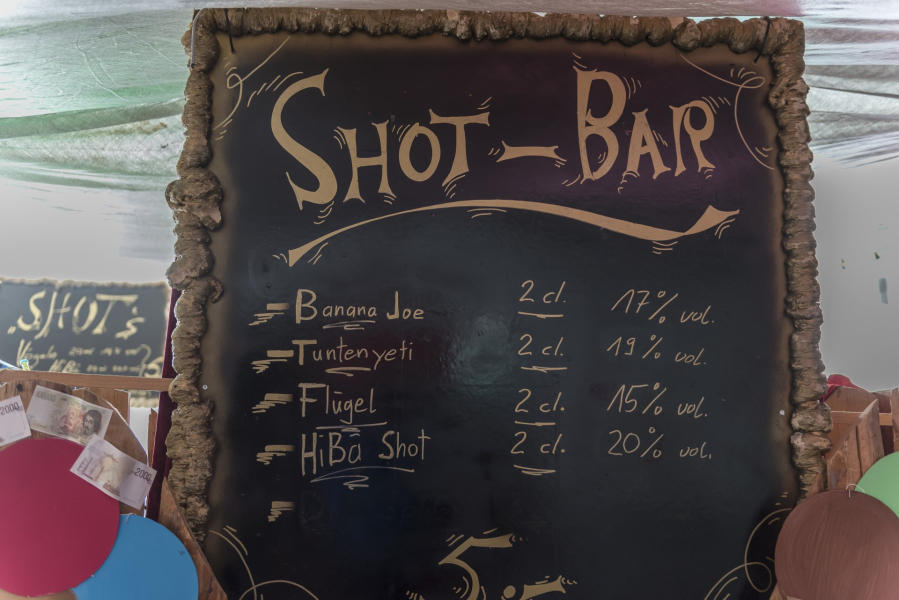 SHOT-BAR
Banana Joe 2 cl. 17% vol.
Tuntenyeti 2 cl. 19% vol.
Flügel 2 cl. 15% vol.
HiBa Shot 2 cl. 20% vol.
5.-
SHOT's
2000
2000